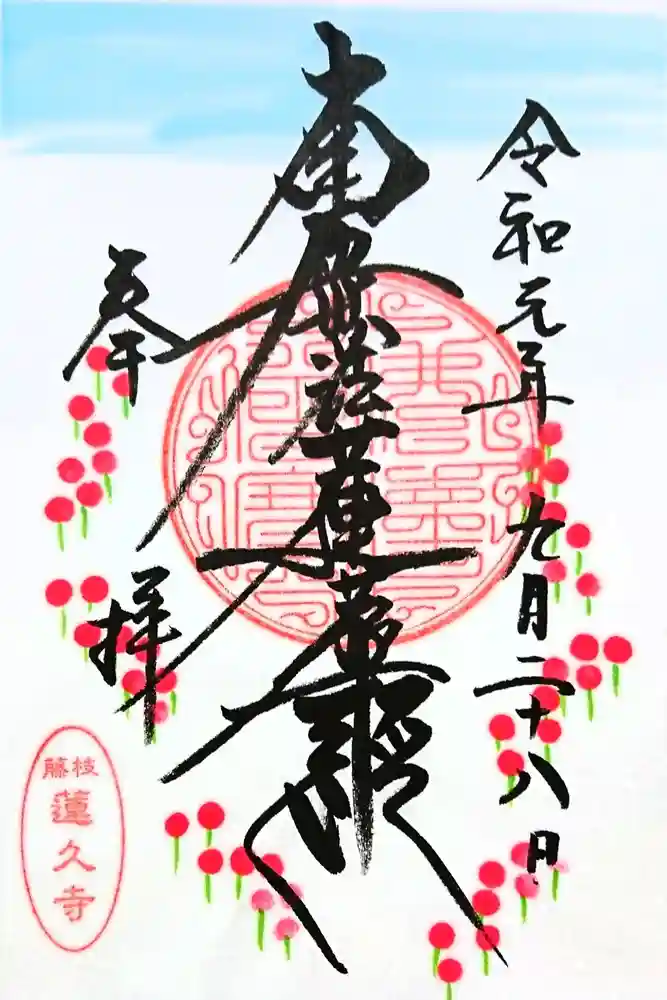 令和元年九月二十八日
南無妙法蓮華経
奉拝
藤枝
蓮久寺